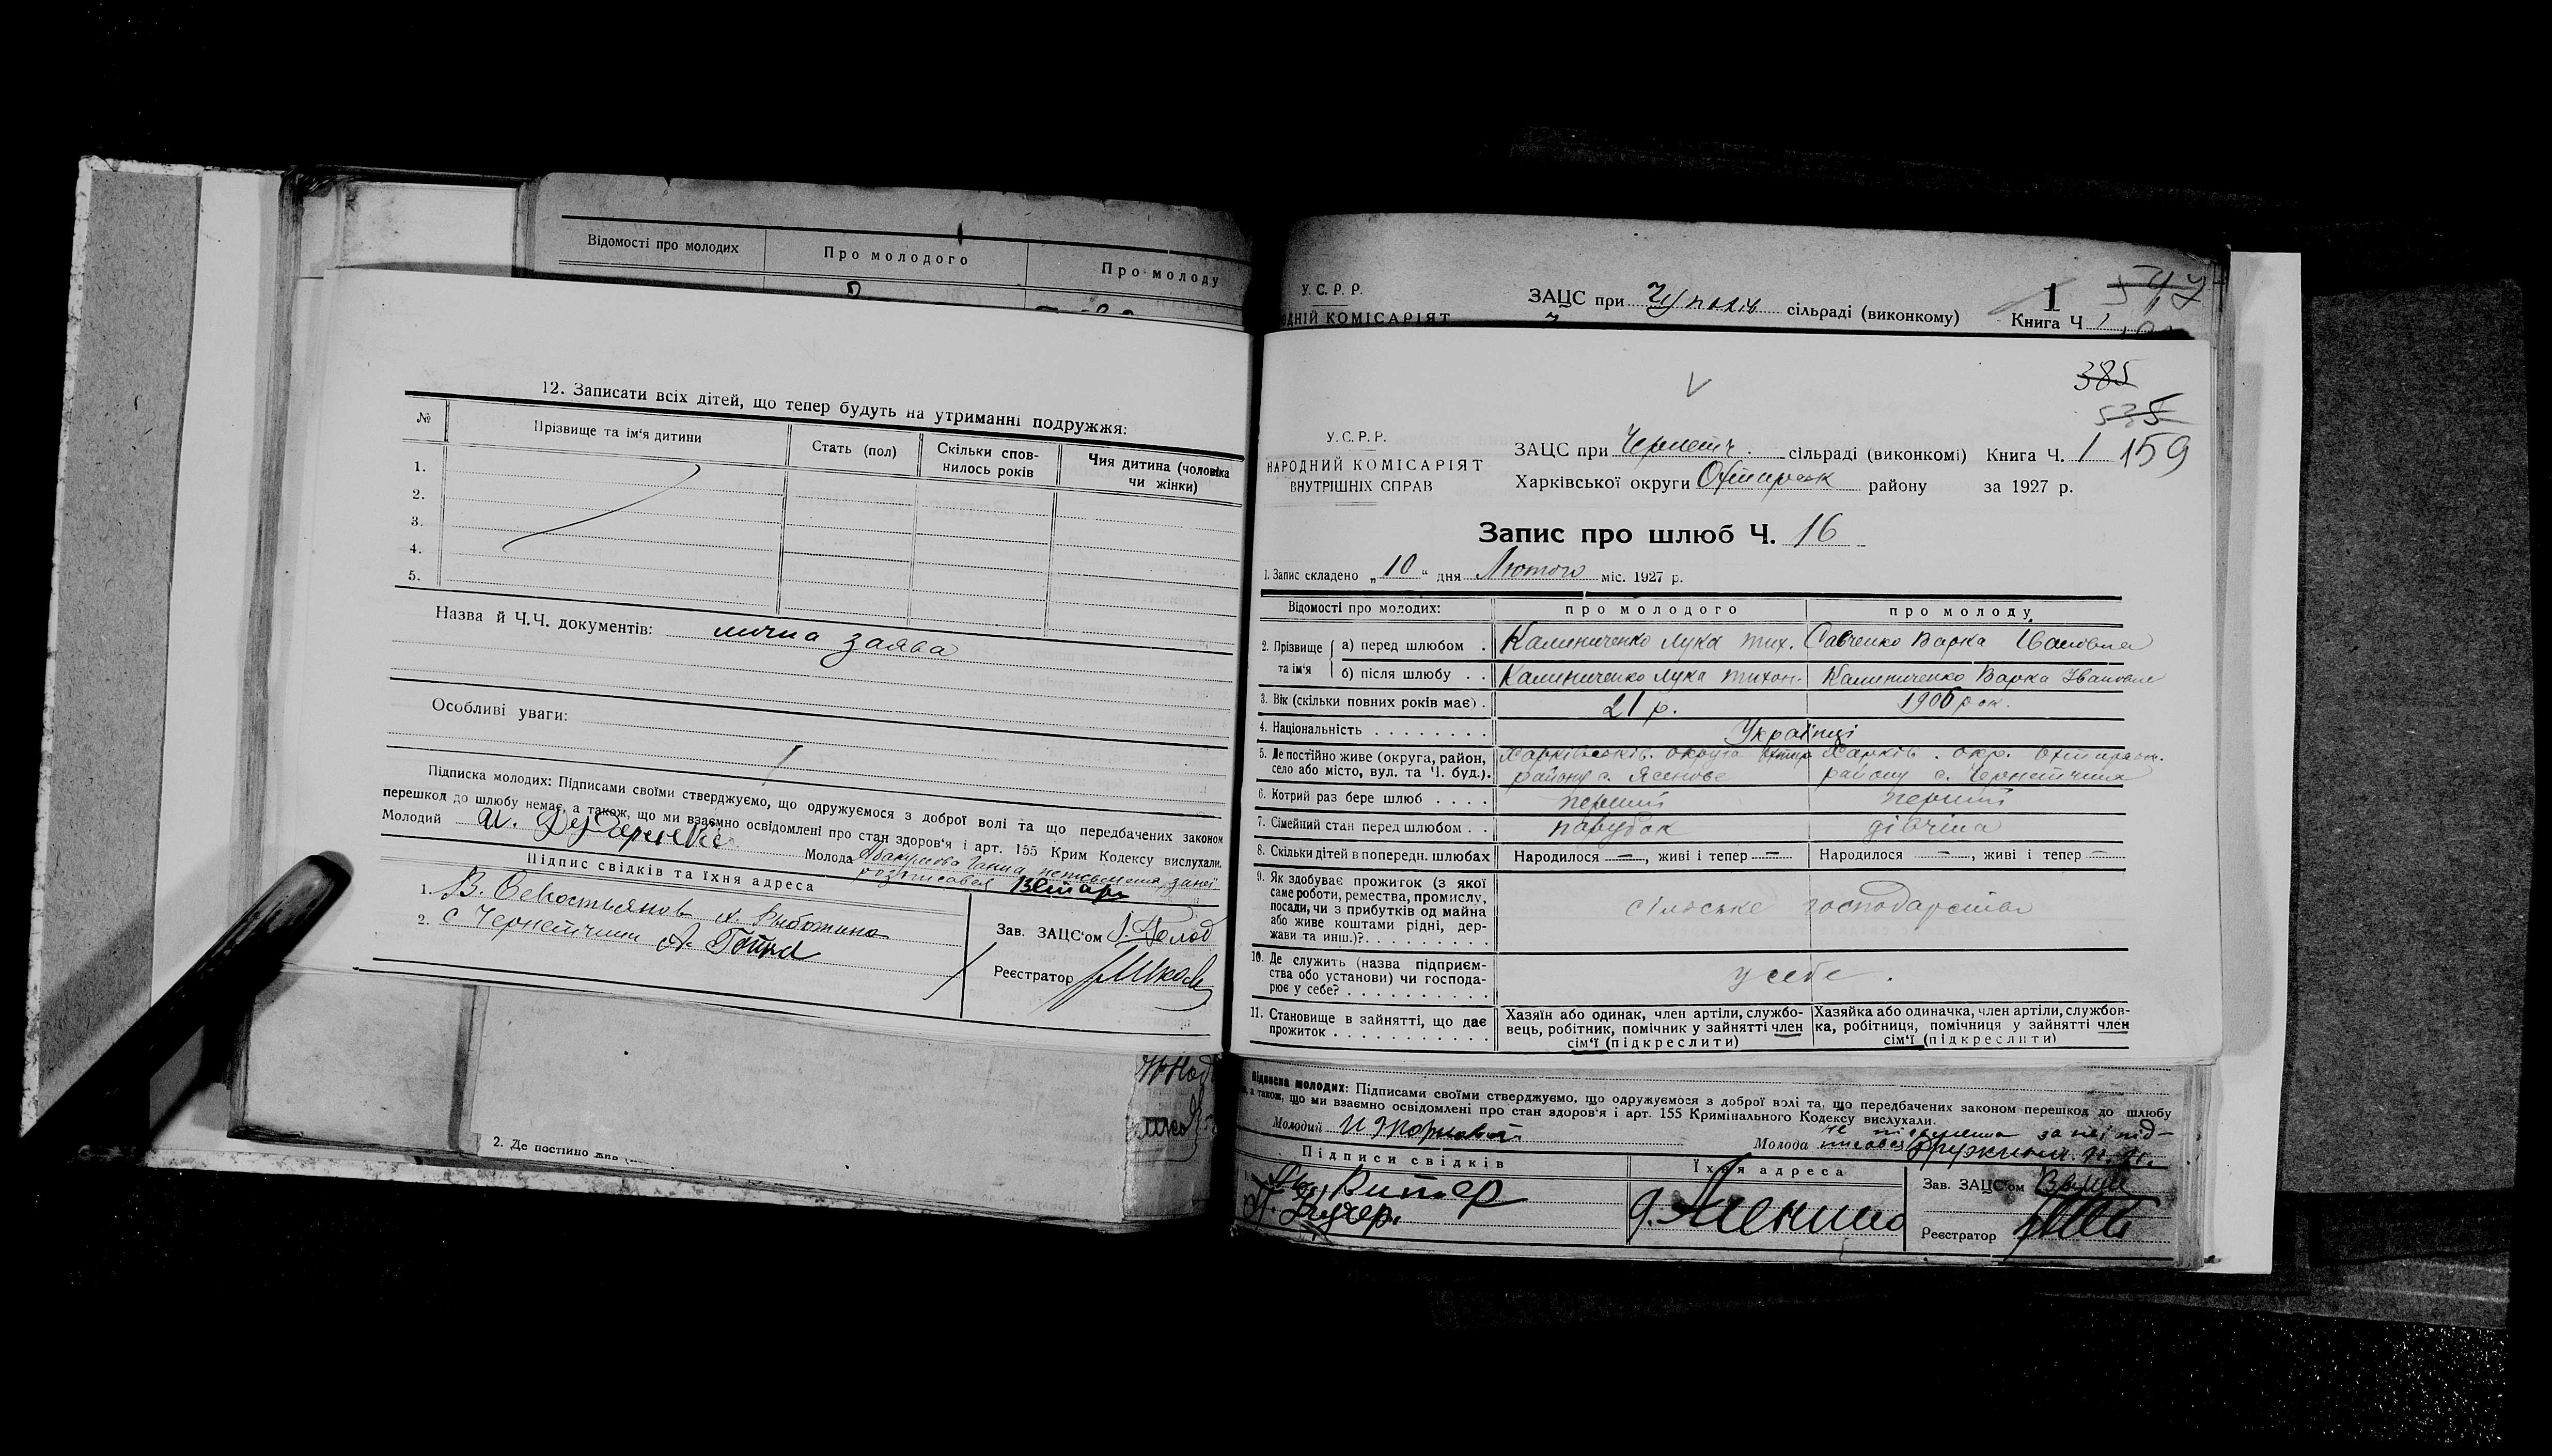 Відомості про молодих Про молодого Про молоду
12. Записати всіх дітей, що тепер будуть на утриманні подружжя:
№ Прізвище та ім'я дитини Стать (пол) Скільки спов-нилось років Чия дитина (чоловіка чи жінки)
1.
2.
3.
4.
5.
Назва й Ч.Ч. документів: лична заява
Особливі уваги:
Підписка молодих: Підписами своїми стверджуємо, що одружуємося з доброї волі та що передбачених законом
перешкод до шлюбу немає, а також, що ми взаємно освідомлені про стан здоров'я і арт. 155 Крим Кодексу вислухали.
Молодий Молода Абакумова Ганна неписьменна за неї
розписався
Підпис свідків та їхня адреса
1. В. Севостьянов х. Рыботина
2. с Чернетчини
Зав. ЗАЦС'ом
Реєстратор
2. Де постійно жив
У.С.Р.Р. ЗАЦС при Чупахів сільраді (виконкому) 1 547
ДНІЙ КОМІСАРІЯТ Книга Ч. 1
385
535
У.С.Р.Р.
НАРОДНИЙ КОМІСАРІЯТ
ВНУТРІШНІХ СПРАВ
ЗАЦС при Чернетч. сільраді (виконкомі) Книга Ч. 1 159
Харківської округи Охтирськ району за 1927 р.
Запис про шлюб Ч. 16
1. Запис складено „10“ дня Лютого міс. 1927 р.
Відомості про молодих: про молодого про молоду
2. Прізвище та ім'я а) перед шлюбом . Калиниченко Лука Тих. Савченко Варка Івановна
б) після шлюбу . . Калиниченко Лука Тихон. Калиниченко Варка Івановн
3. Вік (скільки повних років має) . 21 р. 1906 рок.
4. Національність . . . . . . . . Українці
5. Де постійно живе (округа, район, Харківськ. округа Охтир Харків. окр. Охтирськ.
село або місто, вул. та Ч. буд.). району с. Ясенове району с. Чернетчина
6. Котрий раз бере шлюб . . . . перший перший
7. Сімейний стан перед шлюбом . . парубок дівчина
8. Скільки дітей в попередн. шлюбах Народилося —, живі і тепер — Народилося —, живі і тепер —
9. Як здобуває прожиток (з якої
саме роботи, ремества, промислу,
посади, чи з прибутків од майна сільське господарство
або живе коштами рідні, дер-
жави та инш.)?. . . . . . . . .
10. Де служить (назва підприєм-
ства або установи) чи господа- у себе.
рює у себе? . . . . . . . . . .
11. Становище в зайнятті, що дає прожиток . . . . . . . . . . .
Хазяїн або одинак, член артіли, службо-
вець, робітник, помічник у зайнятті член
сім'ї (підкреслити)
Хазяйка або одиначка, член артіли, службов-
ка, робітниця, помічниця у зайнятті член
сім'ї (підкреслити)
Підписка молодих: Підписами своїми стверджуємо, що одружуємося з доброї волі та, що передбачених законом перешкод до шлюбу
а також, що ми взаємно освідомлені про стан здоров'я і арт. 155 Кримінального Кодексу вислухали.
Молодий Молода не письменна за неї під-
писався
Підписи свідків Їхня адреса
Зав. ЗАЦС'ом
Реєстратор